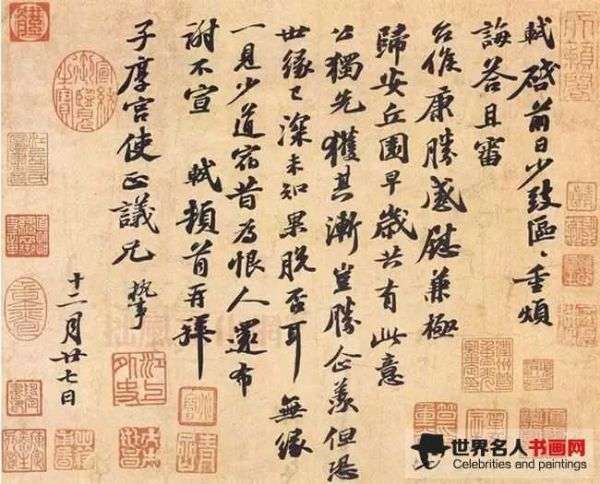 軾啓前日少致區、垂煩
誨答且審
台候康勝感慰兼極
歸安丘園早歲共有此意
公獨先獲其漸豈勝企羨但恐
世緣已深未知果脫否耳無緣
一見少道宿昔為恨人還布
謝不宣 軾頓首再拜
子厚宮使正議兄 執事
十二月廿七日
江上外史
世界名人书画网
Celebrities and paintings